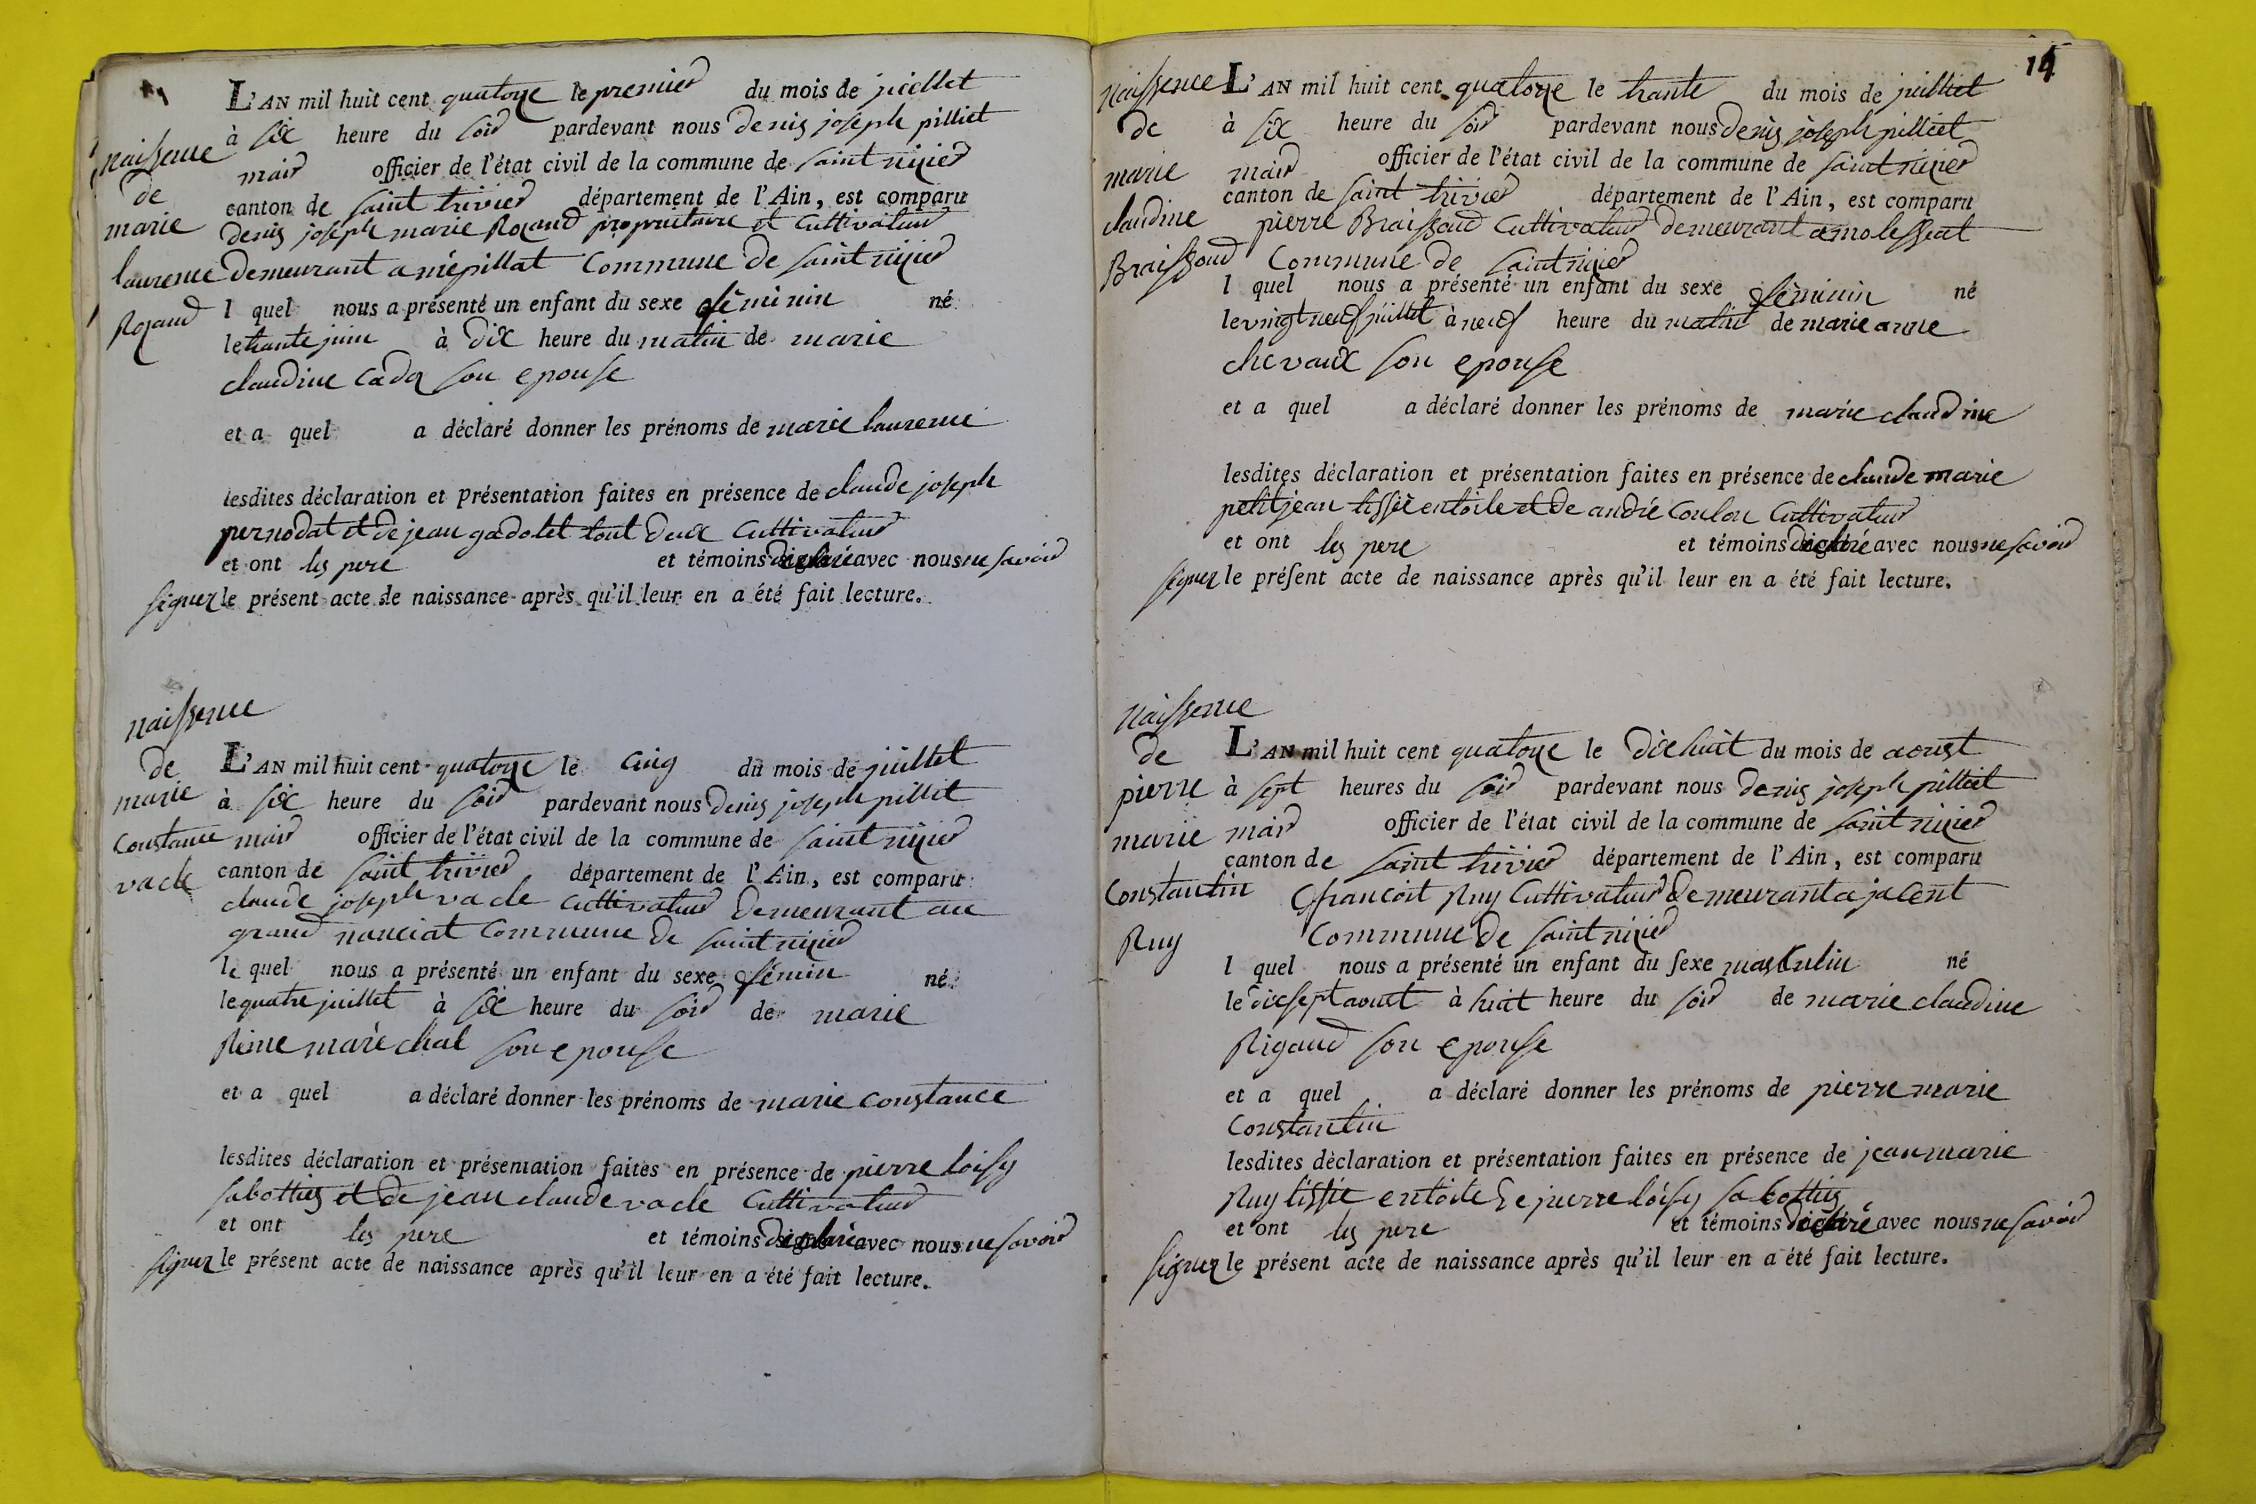 naissence
de
marie
laurence
Rozand
L'AN mil huit cent quatorze le premier du mois de juillet
à six heure du soir pardevant nous denis joseph pilliet
mair officier de l'état civil de la commune de saint nizier
canton de saint trivier département de l'Ain, est comparu
denis joseph marie Rozand propriétaire et Cultivateur
demeurant a mépillat Commune de saint nizier
l quel nous a présenté un enfant du sexe féminin né
le trante juin à dix heure du matin de marie
claudine Cadoz son epouse
et a quel a déclaré donner les prénoms de marie laurence
lesdites déclaration et présentation faites en présence de claude joseph
pernodat et de jean gadolet tout deux Cultivateur
et ont les pere et témoins déclaré avec nous ne savoir
signer le présent acte de naissance après qu'il leur en a été fait lecture.
naissence
de
marie
Constance
vacle
L'AN mil huit cent quatorze le cinq du mois de juillet
à six heure du soir pardevant nous denis joseph pilliet
mair officier de l'état civil de la commune de saint nizier
canton de saint trivier département de l'Ain, est comparu
claude joseph vacle cultivateur demeurant au
grand nanciat Commune de saint nizier
le quel nous a présenté un enfant du sexe fémin né
le quatre juillet à six heure du soir de marie
Reine maréchal son epouse
et a quel a déclaré donner les prénoms de marie constance
lesdites déclaration et présentation faites en présence de pierre loisy
sabottier et de jean claude vacle Cultivateur
et ont les pere et témoins déclaré avec nous ne savoir
signer le présent acte de naissance après qu'il leur en a été fait lecture.
14
naissence
de
marie
claudine
Braissoud
L'AN mil huit cent quatorze le trante du mois de juilliet
à six heure du soir pardevant nous denis joseph pilliet
mair officier de l'état civil de la commune de saint nizier
canton de saint trivier département de l'Ain, est comparu
pierre Braissoud Cultivateur demeurant a molesseat
Commune de saint nizier
l quel nous a présenté un enfant du sexe féminin né
le vingt neuf juillet à neuf heure du matin de marie anne
chevaux son epouse
et a quel a déclaré donner les prénoms de marie claudine
lesdites déclaration et présentation faites en présence de claude marie
petitjean tissié en toile et de andré Coulon Cultivateur
et ont les pere et témoins déclaré avec nous ne savoir
signer le présent acte de naissance après qu'il leur en a été fait lecture.
naissence
de
pierre
marie
Constantin
Ruy
L'AN mil huit cent quatorze le dix huit du mois de aoust
à sept heures du soir pardevant nous denis joseph pilliet
mair officier de l'état civil de la commune de saint nizier
canton de saint trivier département de l'Ain, est comparu
francoit Ruy Cultivateur demeurant a jacent
Commune de saint nizier
l quel nous a présenté un enfant du sexe masculin né
le dix sept aoust à huit heure du soir de marie claudine
Rigaud son epouse
et a quel a déclaré donner les prénoms de pierre marie
Constantin
lesdites déclaration et présentation faites en présence de jean marie
Ruy tissié en toile de pierre loisy sabottier
et ont les pere et témoins déclaré avec nous ne savoir
signer le présent acte de naissance après qu'il leur en a été fait lecture.